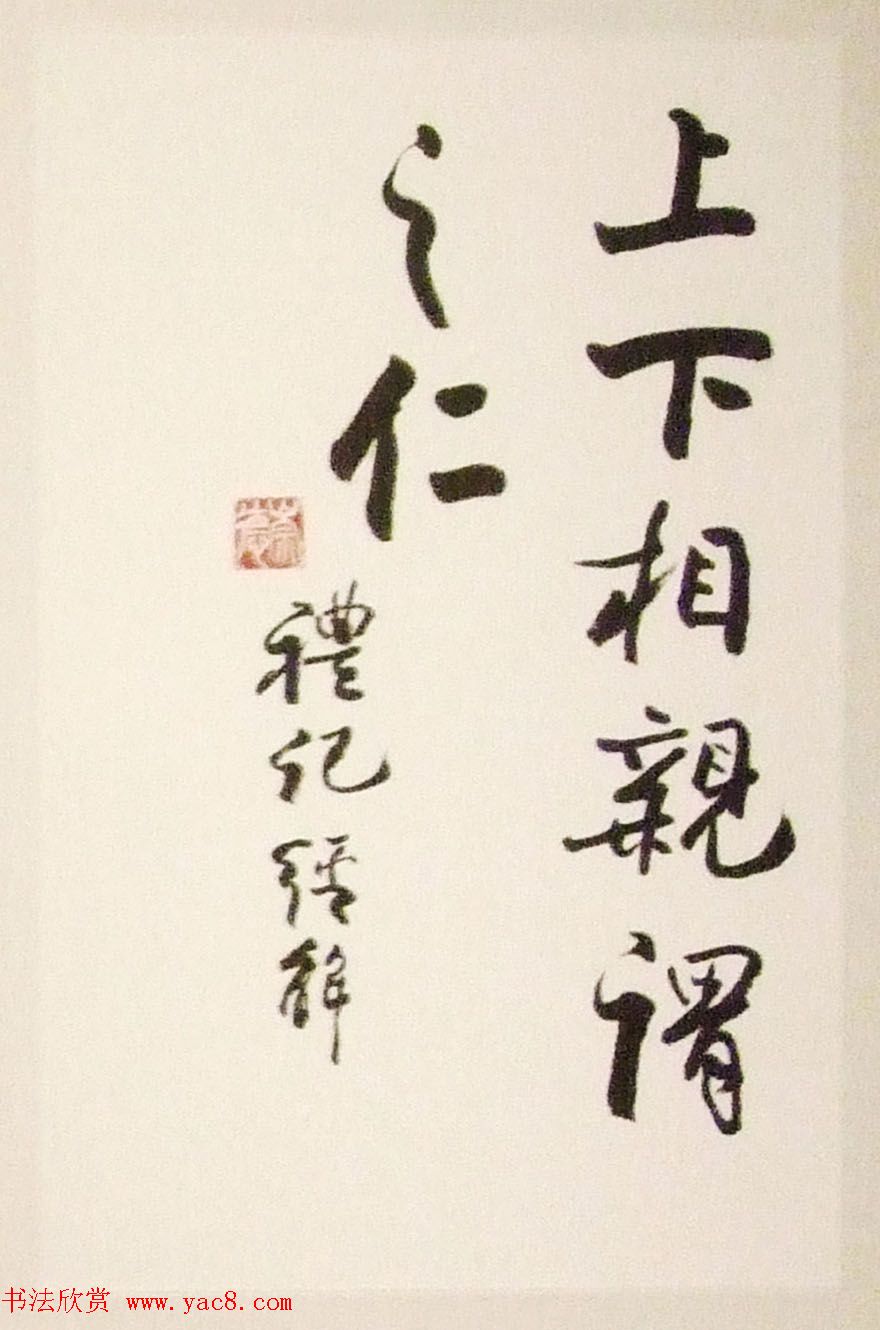 上下相親謂
之仁
禮記經解
书法欣赏 www.yac8.com